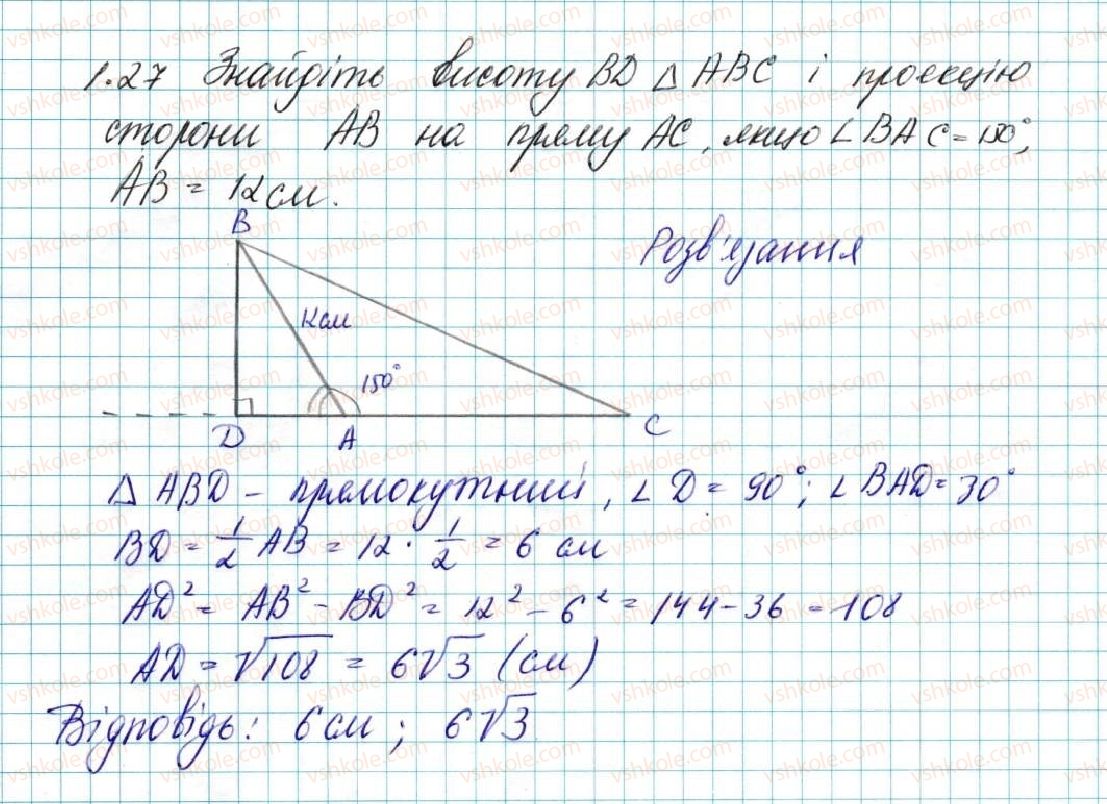 1.27 Знайдіть висоту BD △ ABC і проекцію
сторони AB на пряму AC, якщо ∠BAC = 150°,
AB = 12 см.
B
Розв'язання
12 см
150°
D A C
△ ABD - прямокутний, ∠D = 90°; ∠BAD = 30°
BD = 1/2 AB = 12 · 1/2 = 6 см
AD² = AB² - BD² = 12² - 6² = 144 - 36 = 108
AD = √108 = 6√3 (см)
Відповідь: 6 см; 6√3